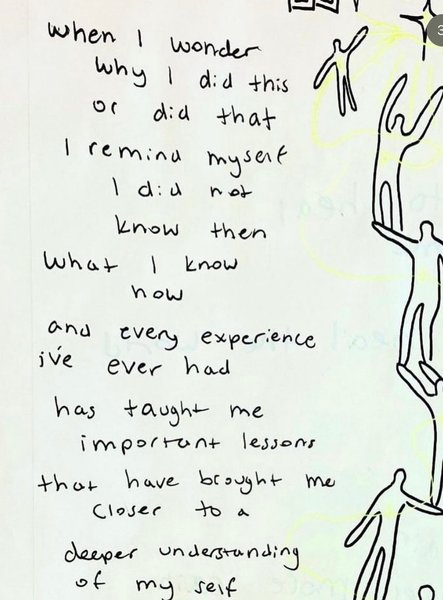 when I wonder
why I did this
or did that
I remind myself
I did not
know then
what I know
now
and every experience
i've ever had
has taught me
important lessons
that have brought me
closer to a
deeper understanding
of my self